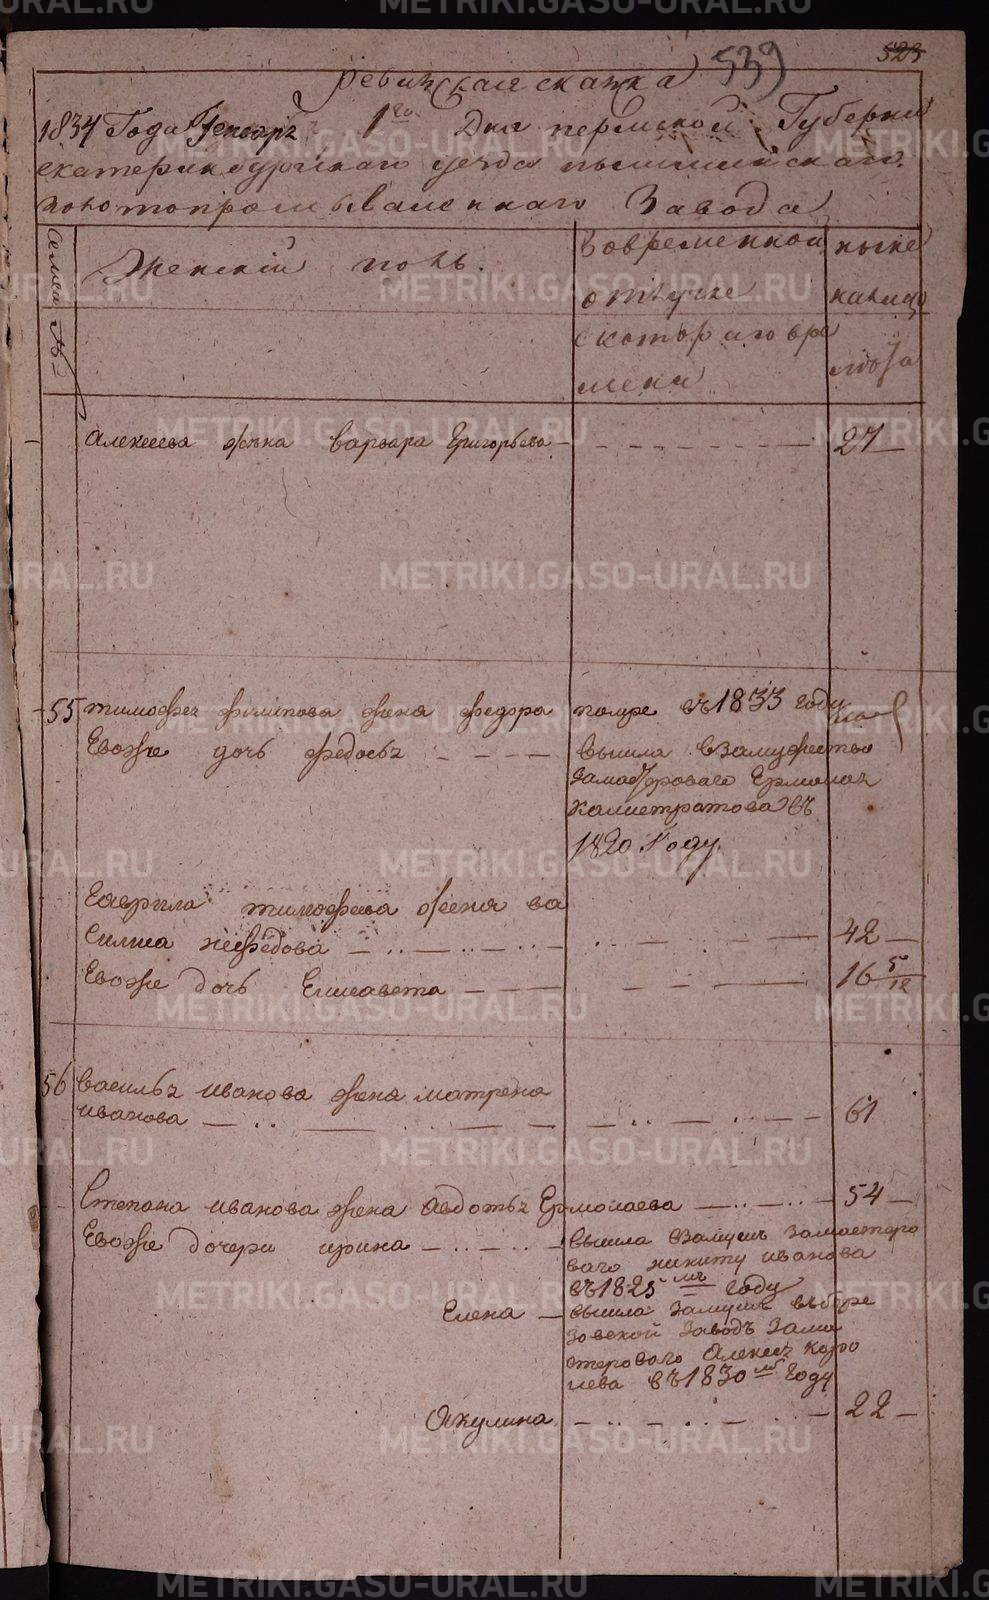 539
523
ревизская скаска
1834 Года Генваря 1го Дня пермской Губернии
екатеринбургскаго уезда пышминскаго
золотопромываленнаго Завода
Семьи №
Женскiй полъ.
Вовременной
отлучке
скотораго вре
мени
ныне
налицо
лета
Алексеева жена варвара Григорьева
27
55
тимофея филипова жена федора
помре въ 1833 году
Евоже дочь федосья
вышла взамужество
замастероваго Ермолая
Калистратова въ
1820 Году
Гаврила тимофеева жена ва
силиса нефедова
42
Евоже дочь Елисавета
16 5/12
56
василья иванова жена матрена
иванова
61
Степана иванова жена Авдотья Ермолаева
54
Евоже дочери ирина
вышла взамуш замастеро
ваго никиту иванова
въ 1825 мъ году
Елена
вышла замуш въбере
зовской Заводъ Зама
стероваго Алексея Коро
лева въ 1830 мъ Году
Акулина
22
METRIKI.GASO-URAL.RU